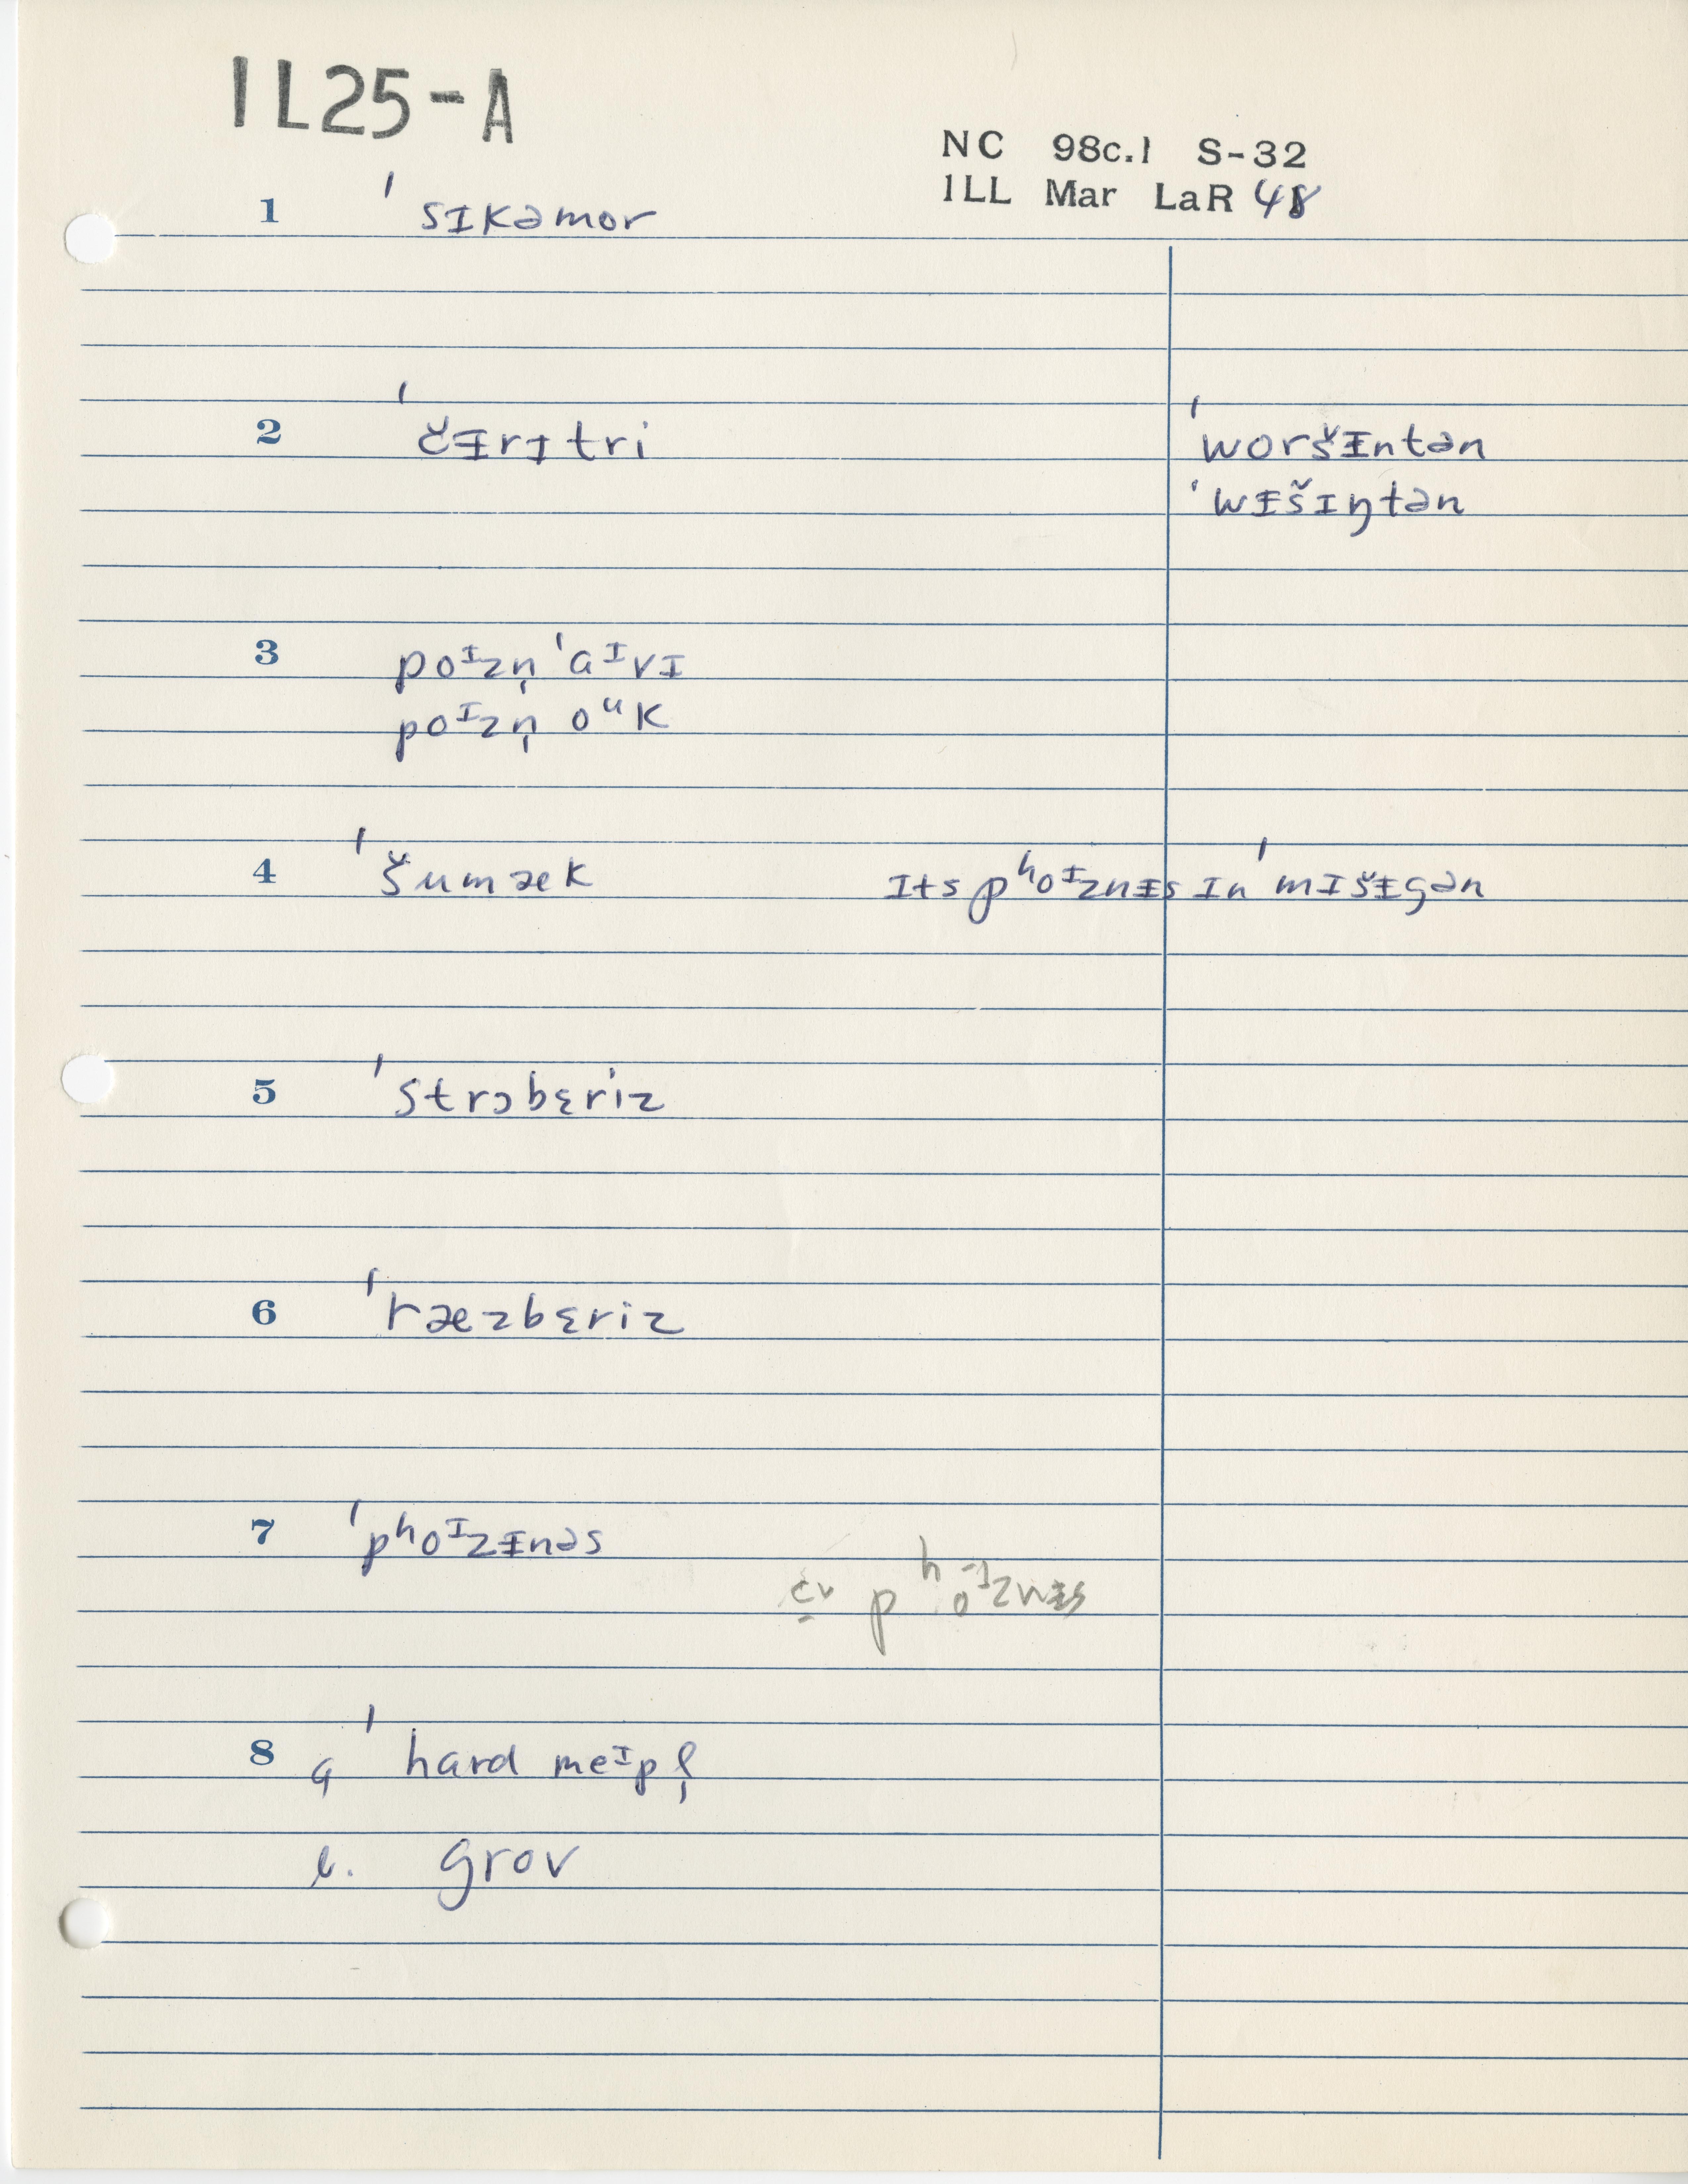 1L25-A
NC 98c.1 S-32
1LL Mar LaR 48
1 ˈsɪkəmor
2 ˈčɪ̵rɪtri ˈworšɪ̵ntən
ˈwɪ̵šɪŋtən
3 poᶦzn̩ ˈaᶦvɪ
poᶦzn̩ oᵘk
4 ˈšumæk ɪts pʰoᶦznɪ̵s ɪn ˈmɪšɪ̵gən
5 ˈstrɔbɛriz
6 ˈræzbɛriz
7 ˈpʰoᶦzɪ̵nəs
cv pʰoᶦznɪ̵s
8 a ˈhard meᶦpl̩
b. grov